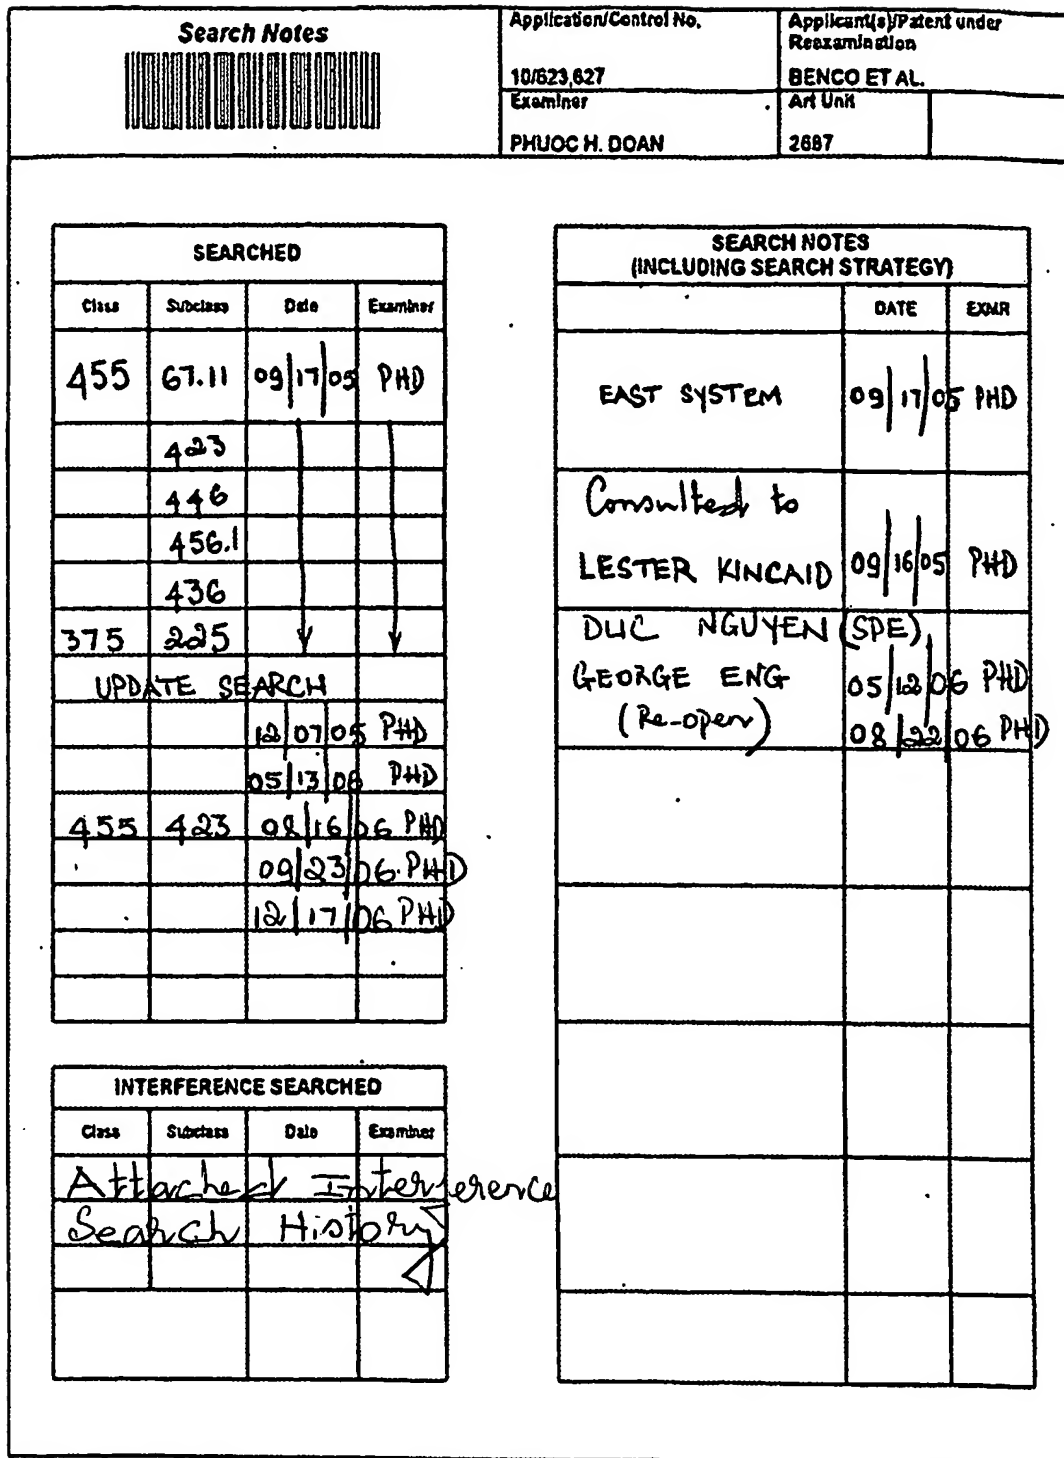 Search Notes
Application/Control No.
10/623,627
Applicant(s)/Patent under
Reexamination
BENCO ET AL.
Examiner
PHUOC H. DOAN
Art Unit
2687
SEARCHED
Class Subclass Date Examiner
455 67.11 09/17/05 PHD
423
446
456.1
436
375 225
UPDATE SEARCH
12/07/05 PHD
05/13/06 PHD
455 423 08/16/06 PHD
09/23/06 PHD
12/17/06 PHD
INTERFERENCE SEARCHED
Class Subclass Date Examiner
Attached Interference
Search History
SEARCH NOTES
(INCLUDING SEARCH STRATEGY)
DATE EXMR
EAST SYSTEM 09/17/05 PHD
Consulted to
LESTER KINCAID 09/16/05 PHD
DUC NGUYEN (SPE),
GEORGE ENG 05/12/06 PHD
(Re-open) 08/22/06 PHD